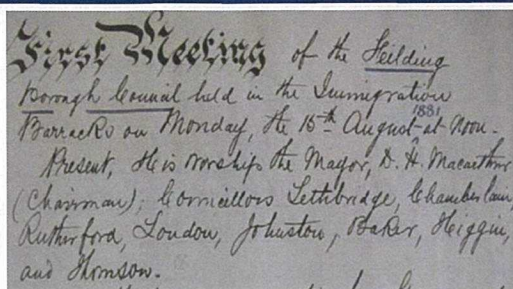 First Meeting of the Feilding
Borough Council held in the Immigration
1881
Barracks on Monday, the 15th August at Noon.
Present, His Worship the Mayor, D. H. Macarthur
(Chairman); Councillors Lethbridge, Chamberlain,
Rutherford, London, Johnston, Baker, Higgin,
and Thomson.